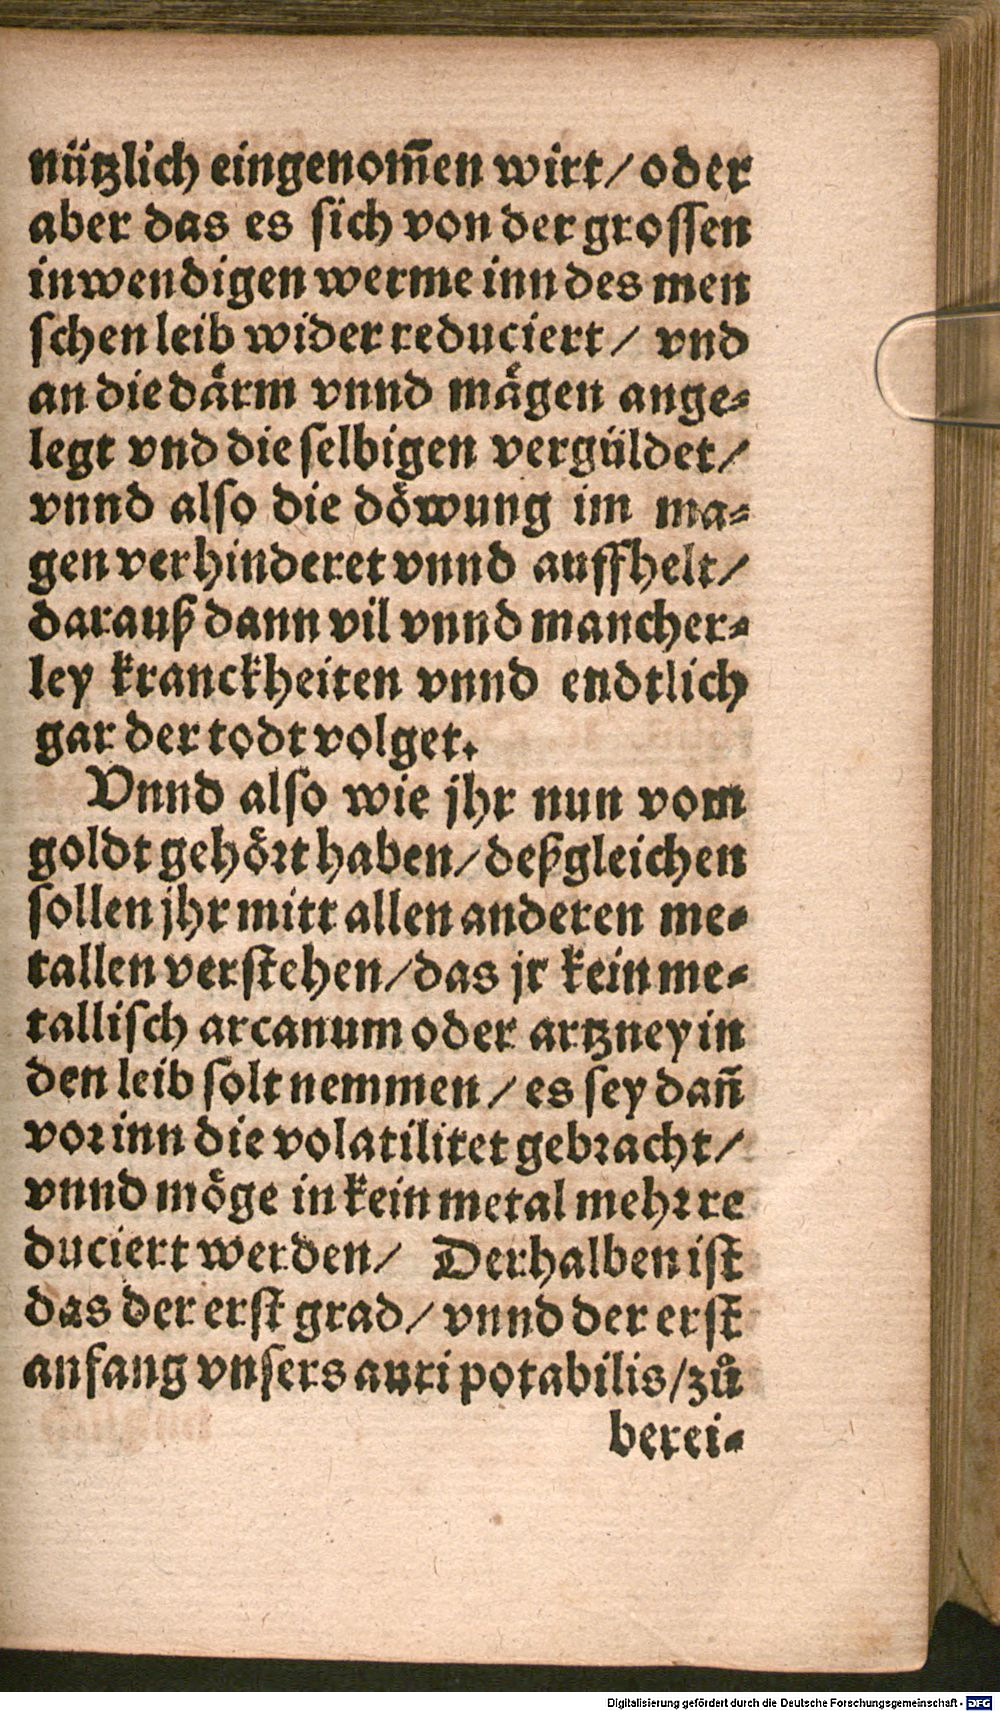 nützlich eingenom̃en wirt/ oder
aber das es sich von der grossen
inwendigen werme inn des men
schen leib wider reduciert/ vnd
an die därm vnnd mägen ange⸗
legt vnd die selbigen vergüldet/
vnnd also die döwung im ma⸗
gen verhinderet vnnd auffhelt/
darauß dann vil vnnd mancher⸗
ley kranckheiten vnnd endtlich
gar der todt volget.
Vnnd also wie jhr nun vom
goldt gehört haben/ deßgleichen
sollen jhr mitt allen anderen me⸗
tallen verstehen/ das jr kein me⸗
tallisch arcanum oder artzney in
den leib solt nemmen/ es sey dañ
vor inn die volatilitet gebracht/
vnnd möge in kein metal mehr re
duciert werden/ Derhalben ist
das der erst grad/ vnnd der erst
anfang vnsers auri potabilis/ zů
berei⸗
Digitalisierung gefördert durch die Deutsche Forschungsgemeinschaft - DFG